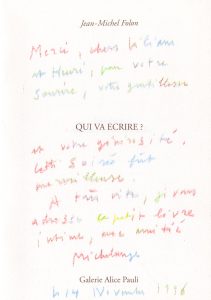 Jean-Michel Folon
Merci, chers Liliane
et Henri, pour votre
sourire, votre gentillesse
QUI VA ECRIRE ?
et votre générosité,
cette soirée fut
merveilleuse.
A très vite, je vous
adresse ce petit livre
intime, avec amitié
Michelange
Galerie Alice Pauli
14 Novembre 1996